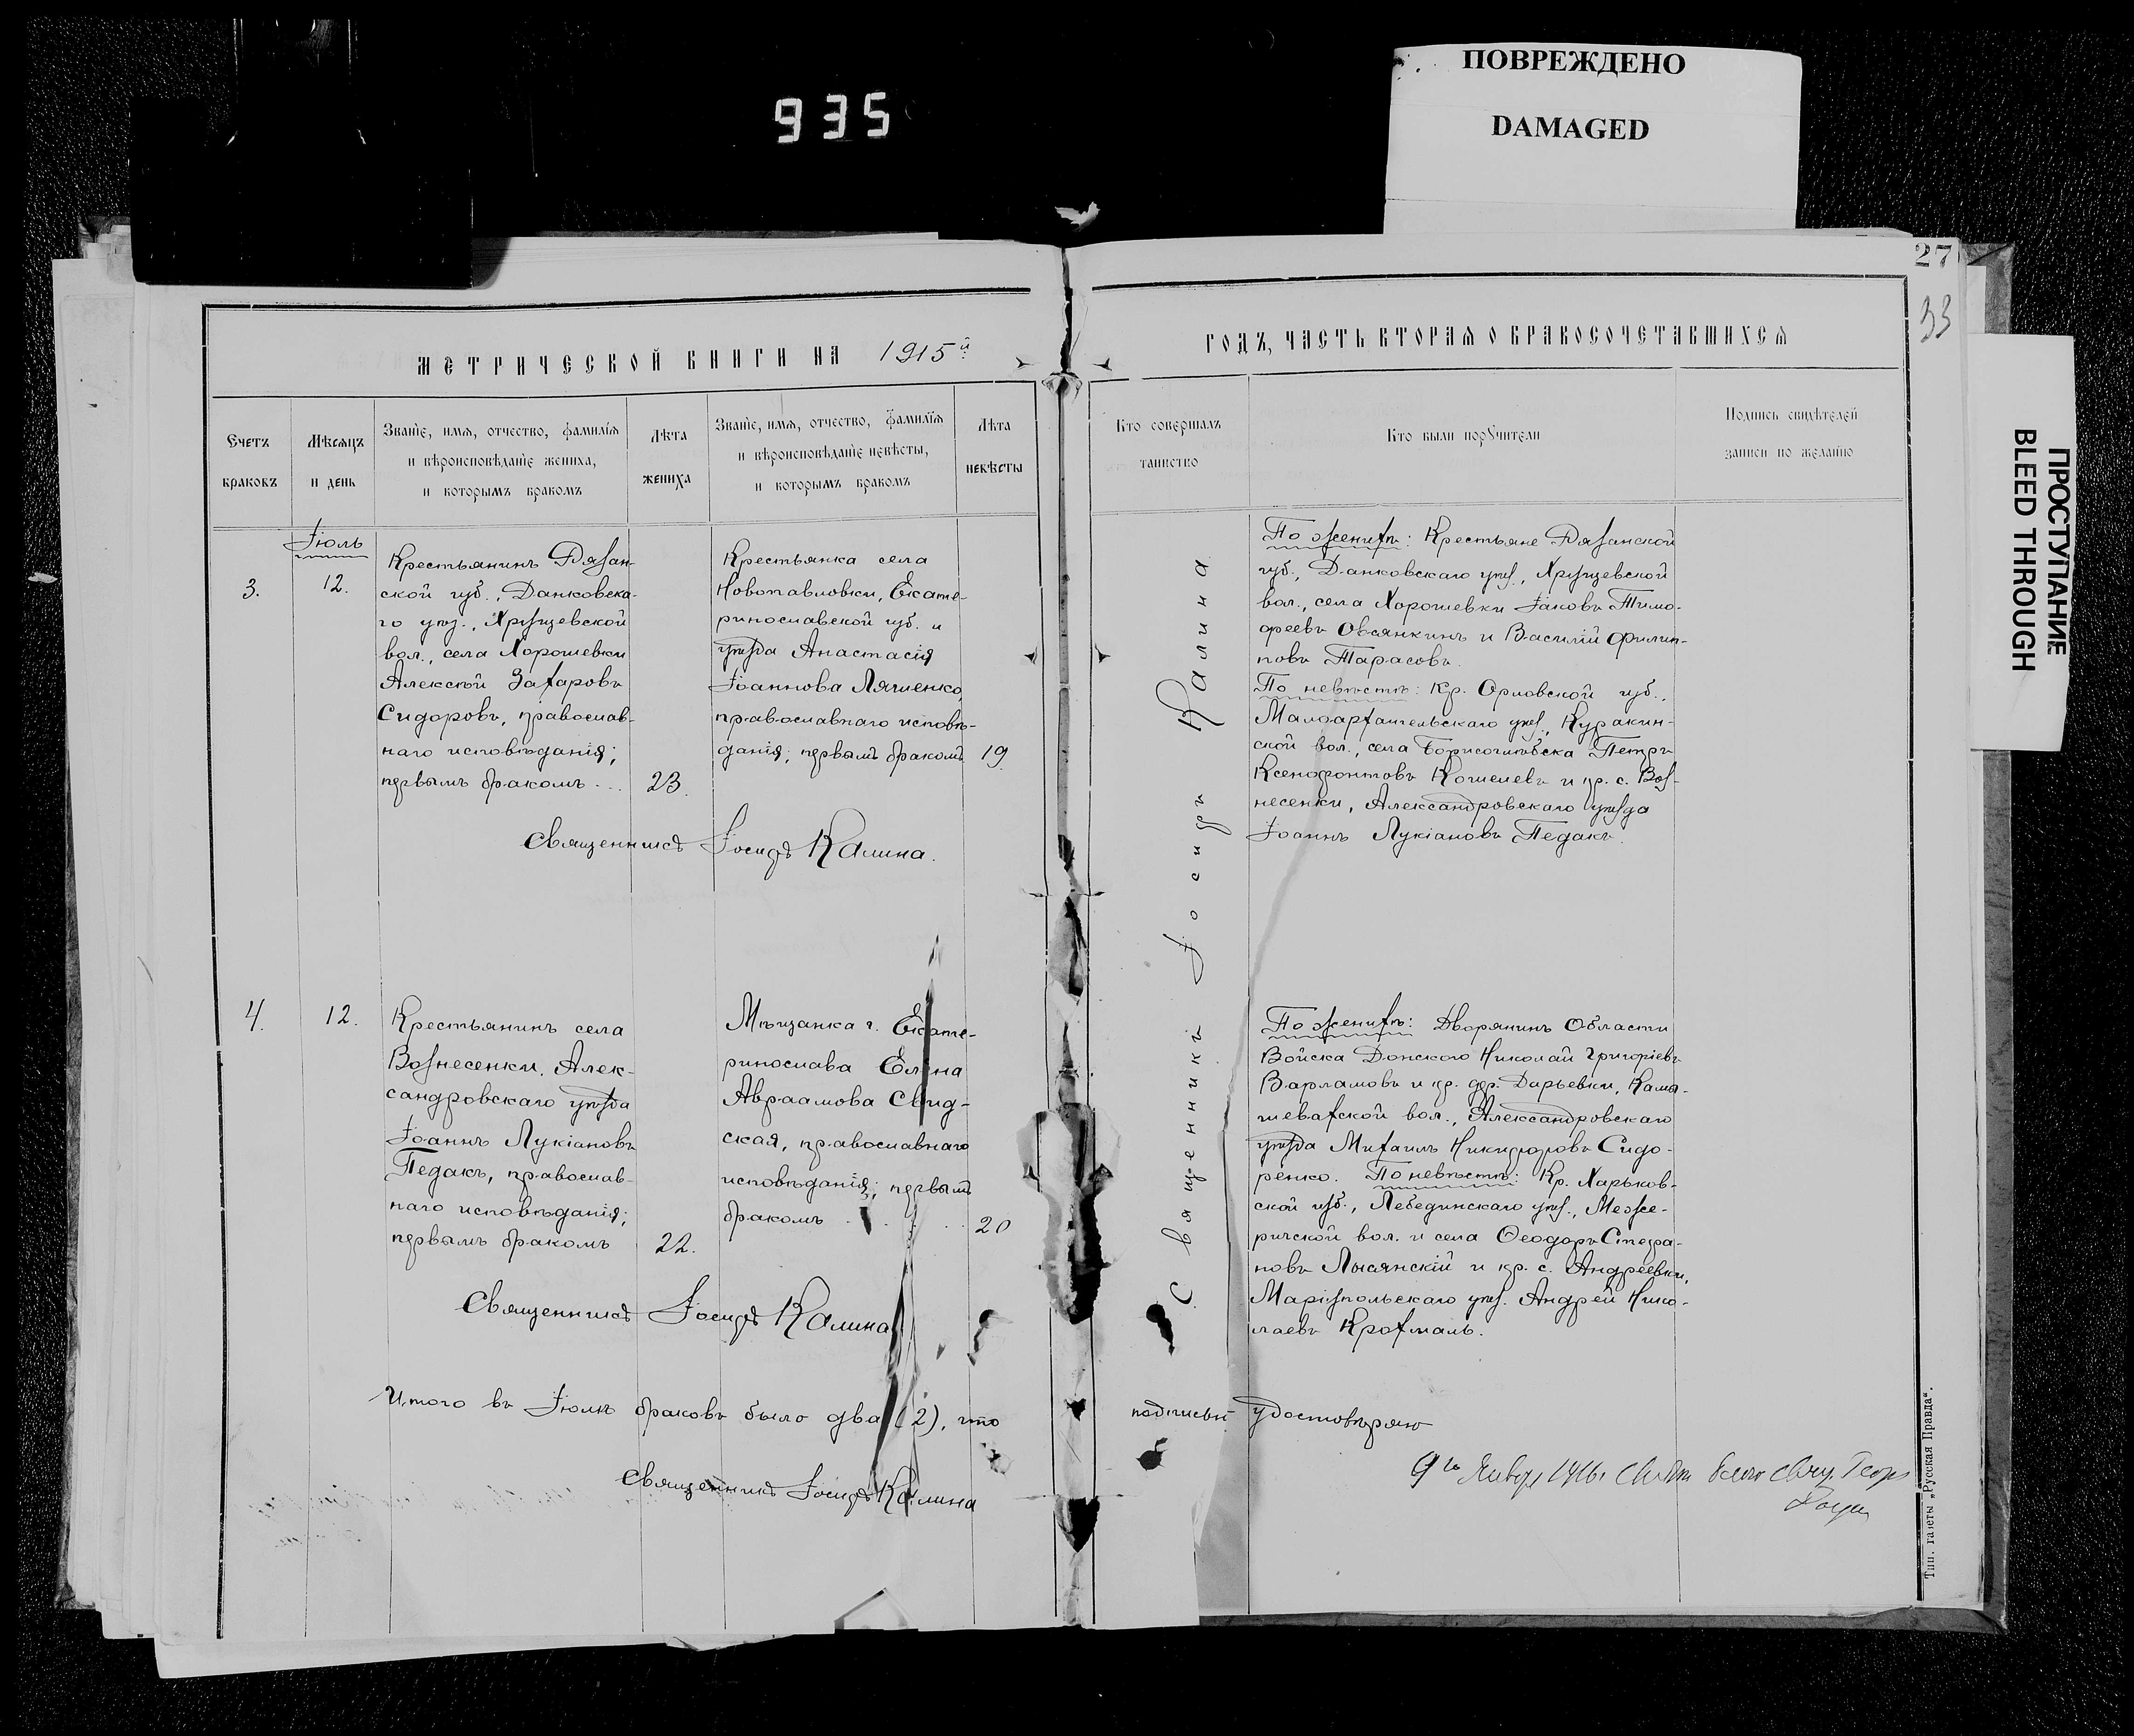 935
ПОВРЕЖДЕНО
DAMAGED
ПРОСТУПАНИЕ
BLEED THROUGH
27
33
МЕТРИЧЕСКОЙ КНИГИ НА 1915й
ГОДЪ, ЧАСТЬ ВТОРАЯ О БРАКОСОЧЕТАВШИХСЯ
Счетъ
браковъ
Мѣсяцъ
и день
Званіе, имя, отчество, фамилія
и вѣроисповѣданіе жениха,
и которымъ бракомъ
Лѣта
жениха
Званіе, имя, отчество, фамилія
и вѣроисповѣданіе невѣсты,
и которымъ бракомъ
Лѣта
невѣсты
Кто совершалъ
таинство
Кто были поручители
Подпись свидѣтелей
записи по желанію
3.
Іюль
12.
Крестьянинъ Рязан-
ской губ., Данковска-
го уѣз., Хрущевской
вол., села Хорошевки
Алексѣй Захаровъ
Сидоровъ, православ-
наго исповѣданія;
первымъ бракомъ...
23.
Крестьянка села
Новопавловки, Екате-
ринославской губ. и
уѣзда Анастасія
Іоаннова Ляшенко,
православнаго исповѣ-
данія; первымъ бракомъ
19.
Священникъ Іосифъ Калина.
Священникъ Іосифъ Калина
По женихѣ: Крестьяне Рязанской
губ., Данковскаго уѣз., Хрущевской
вол., села Хорошевки Іаковъ Тимо-
феевъ Овсянкинъ и Василій Филип-
повъ Тарасовъ.
По невѣстѣ: Кр. Орловской губ.,
Малоархангельскаго уѣз., Куракин-
ской вол., села Борисоглѣбска Петръ
Ксенофонтовъ Кошелевъ и кр. с. Воз-
несенки, Александровскаго уѣзда
Іоаннъ Лукіановъ Педакъ.
4.
12.
Крестьянинъ села
Вознесенки, Алек-
сандровскаго уѣзда
Іоаннъ Лукіановъ
Педакъ, православ-
наго исповѣданія;
первымъ бракомъ
22.
Мѣщанка г. Екате-
ринослава Елена
Авраамова Свид-
ская, православнаго
исповѣданія; первымъ
бракомъ
20
Священникъ Іосифъ Калина
По женихѣ: Дворянинъ Области
Войска Донского Николай Григоріевъ
Варламовъ и кр. дер. Дарьевки, Камы-
шевахской вол., Александровскаго
уѣзда Михаилъ Никифоровъ Сидо-
ренко. По невѣстѣ: Кр. Харьков-
ской губ., Лебединскаго уѣз., Меже-
ричской вол. и села Ѳеодоръ Стефа-
новъ Лысянскій и кр. с. Андреевки,
Маріупольскаго уѣз. Андрей Нико-
лаевъ Крохмаль.
Итого въ Іюлѣ браковъ было два (2), что
подписью удостовѣряю
Священникъ Іосифъ Калина
9го Января 1916г
Тип. газеты „Русская Правда“.